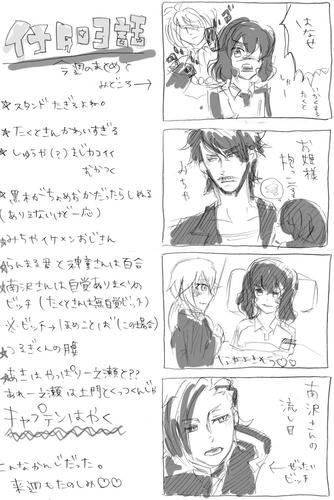 イナダ日3話
今週のまとめと
みどころ→
★スタンドだぎるよね。
★たくとさんかわいすぎる
★しゅうや(?)まじカコイイ
おがつく
★黒木が
(ありえないけど一応)
★みちやイケメンおじさん
★らんまる君と神童さんは百合
★南沢さんは自覚ありまくりの
ビッチ(たくとさんは無自覚ビッチ)
※ビッチ→ほめことば(この場合)
★つるぎくんの腰
★あきはやっぱ一之瀬と??
あれ一之瀬は土門とくっつくんじゃ
キャプテンはやく
こんなかんじだった。
来週もたのしみ♡♡
はなせ
たくと
お姫様
抱っこ
みちや
なかよきかな♡♡
南沢さんの
流し目
←ぜったい
ビッチ